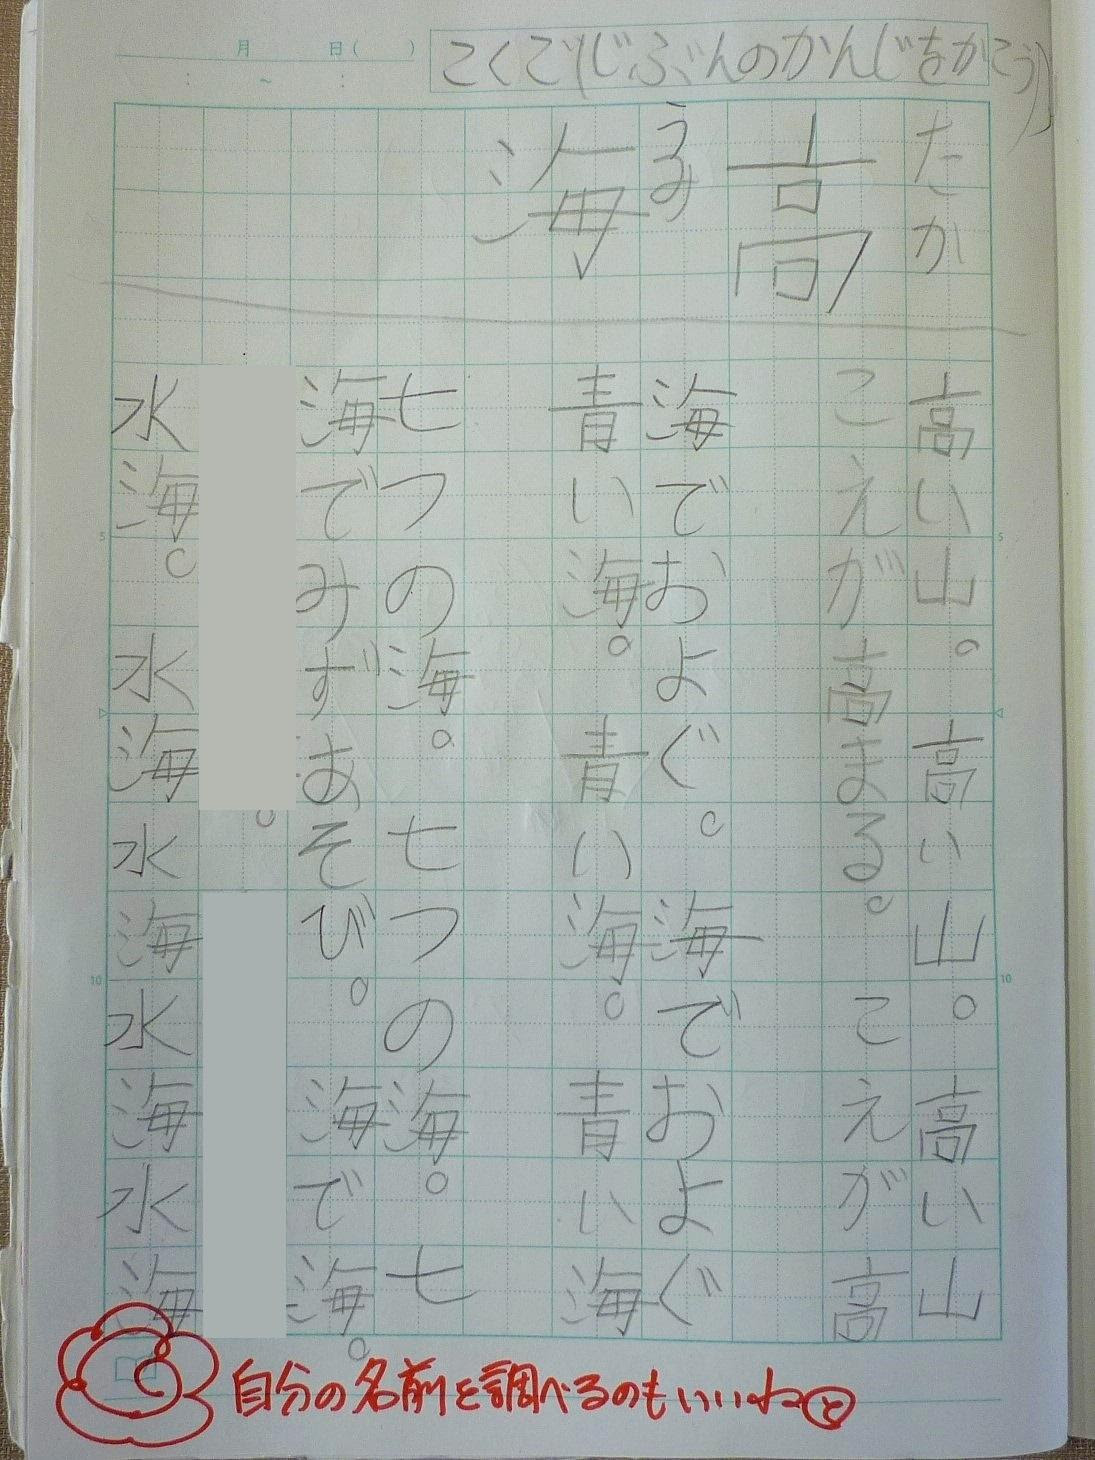 月 日( )
: ~ :
こくご(じぶんのかんじをかこう)
たか
高
うみ
海
高い山。高い山。高い山
こえが高まる。こえが高
海でおよぐ。海でおよぐ
青い海。青い海。青い海
七つの海。七つの海。七
海でみずあそび。海で海。
。
水海。水海水海水海水海
5
5
10
10
自分の名前を調べるのもいいね